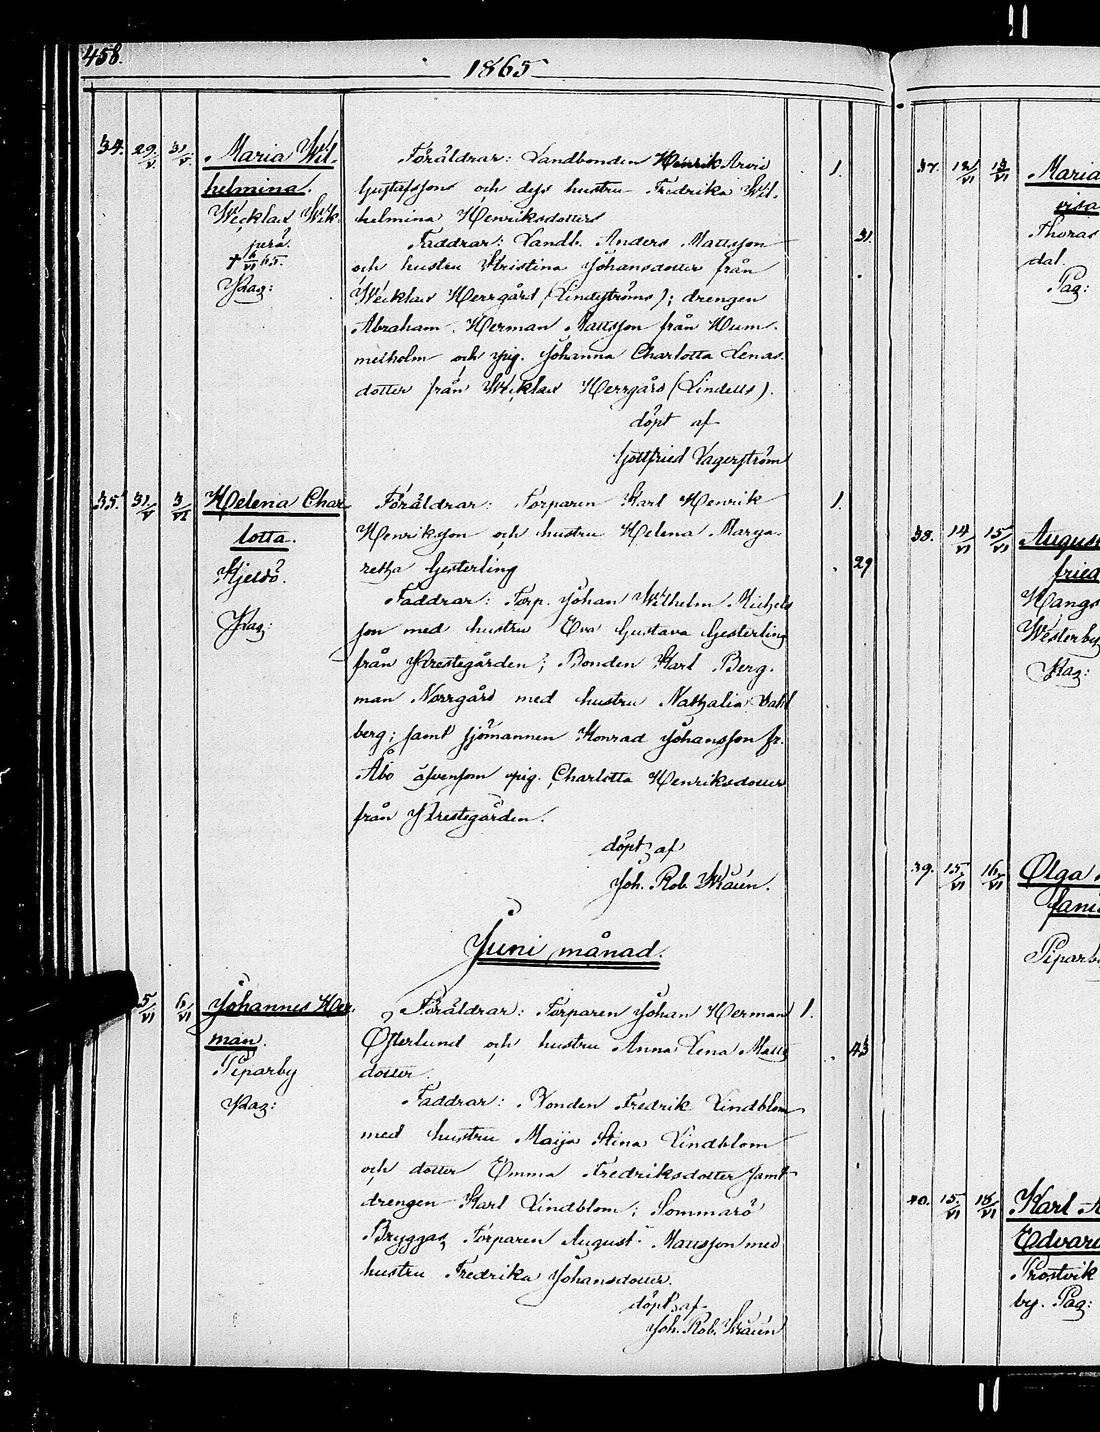 458.
1865
34. 29/V 31/V. Maria Wil-
helmina.
Wecklax Wik-
† 6/VI 65.
Pag:
Föräldrar: Landbonden Henrik Arvid
Gustafsson och dess hustru Fredrika Wil-
helmina Henriksdotter
1.
31.
Faddrar: Landb. Anders Mattsson
och hustru Kristina Johansdotter från
Wecklax Herrgård (Lindströms); drengen
Abraham Herman Mattsson från Hum-
melholm och pig. Johanna Charlotta Lenas-
dotter från Wecklax Herrgård (Lindells).
döpt af
Gottfried Lagerström
35. 31/V 3/VI Helena Char-
lotta.
Kjeldö.
Pag:
Föräldrar: Torparen Karl Henrik
Henriksson och hustru Helena Marga-
retha Gesterling
1.
29
Faddrar: Torp. Johan Wilhelm Michels
son med hustru Eva Gustava Gesterling
från Prestegården; Bonden Karl Berg-
man Norrgård med hustru Nathalia Dahl
berg; samt sjömannen Konrad Johansson fr.
Åbo äfvensom pig. Charlotta Henriksdotter
från Prestegården.
döpt af
Joh. Rob.
Juni månad.
5/VI 6/VI Johannes Her-
man.
Piparby
Pag:
Föräldrar: Torparen Johan Herman
Österlund och hustru Anna Lena Matts
dotter.
1.
43
Faddrar: Bonden Fredrik Lindblom
med hustru Maija Stina Lindblom
och dotter Emma Fredriksdotter samt
drengen Karl Lindblom; Sommarö
Bryggas Torparen August Mattsson med
hustru Fredrika Johansdotter.
döpt af
Joh. Rob.
37. 12/VI 13/VI Maria
visa
dal.
Pag:
38. 14/VI 15/VI August
fried
Hangs
Westerby
Pag:
39. 15/VI 16/VI Olga
fani
Piparby
40. 15/VI 18/VI Karl A
Edvard
Prostvik
by. Pag: